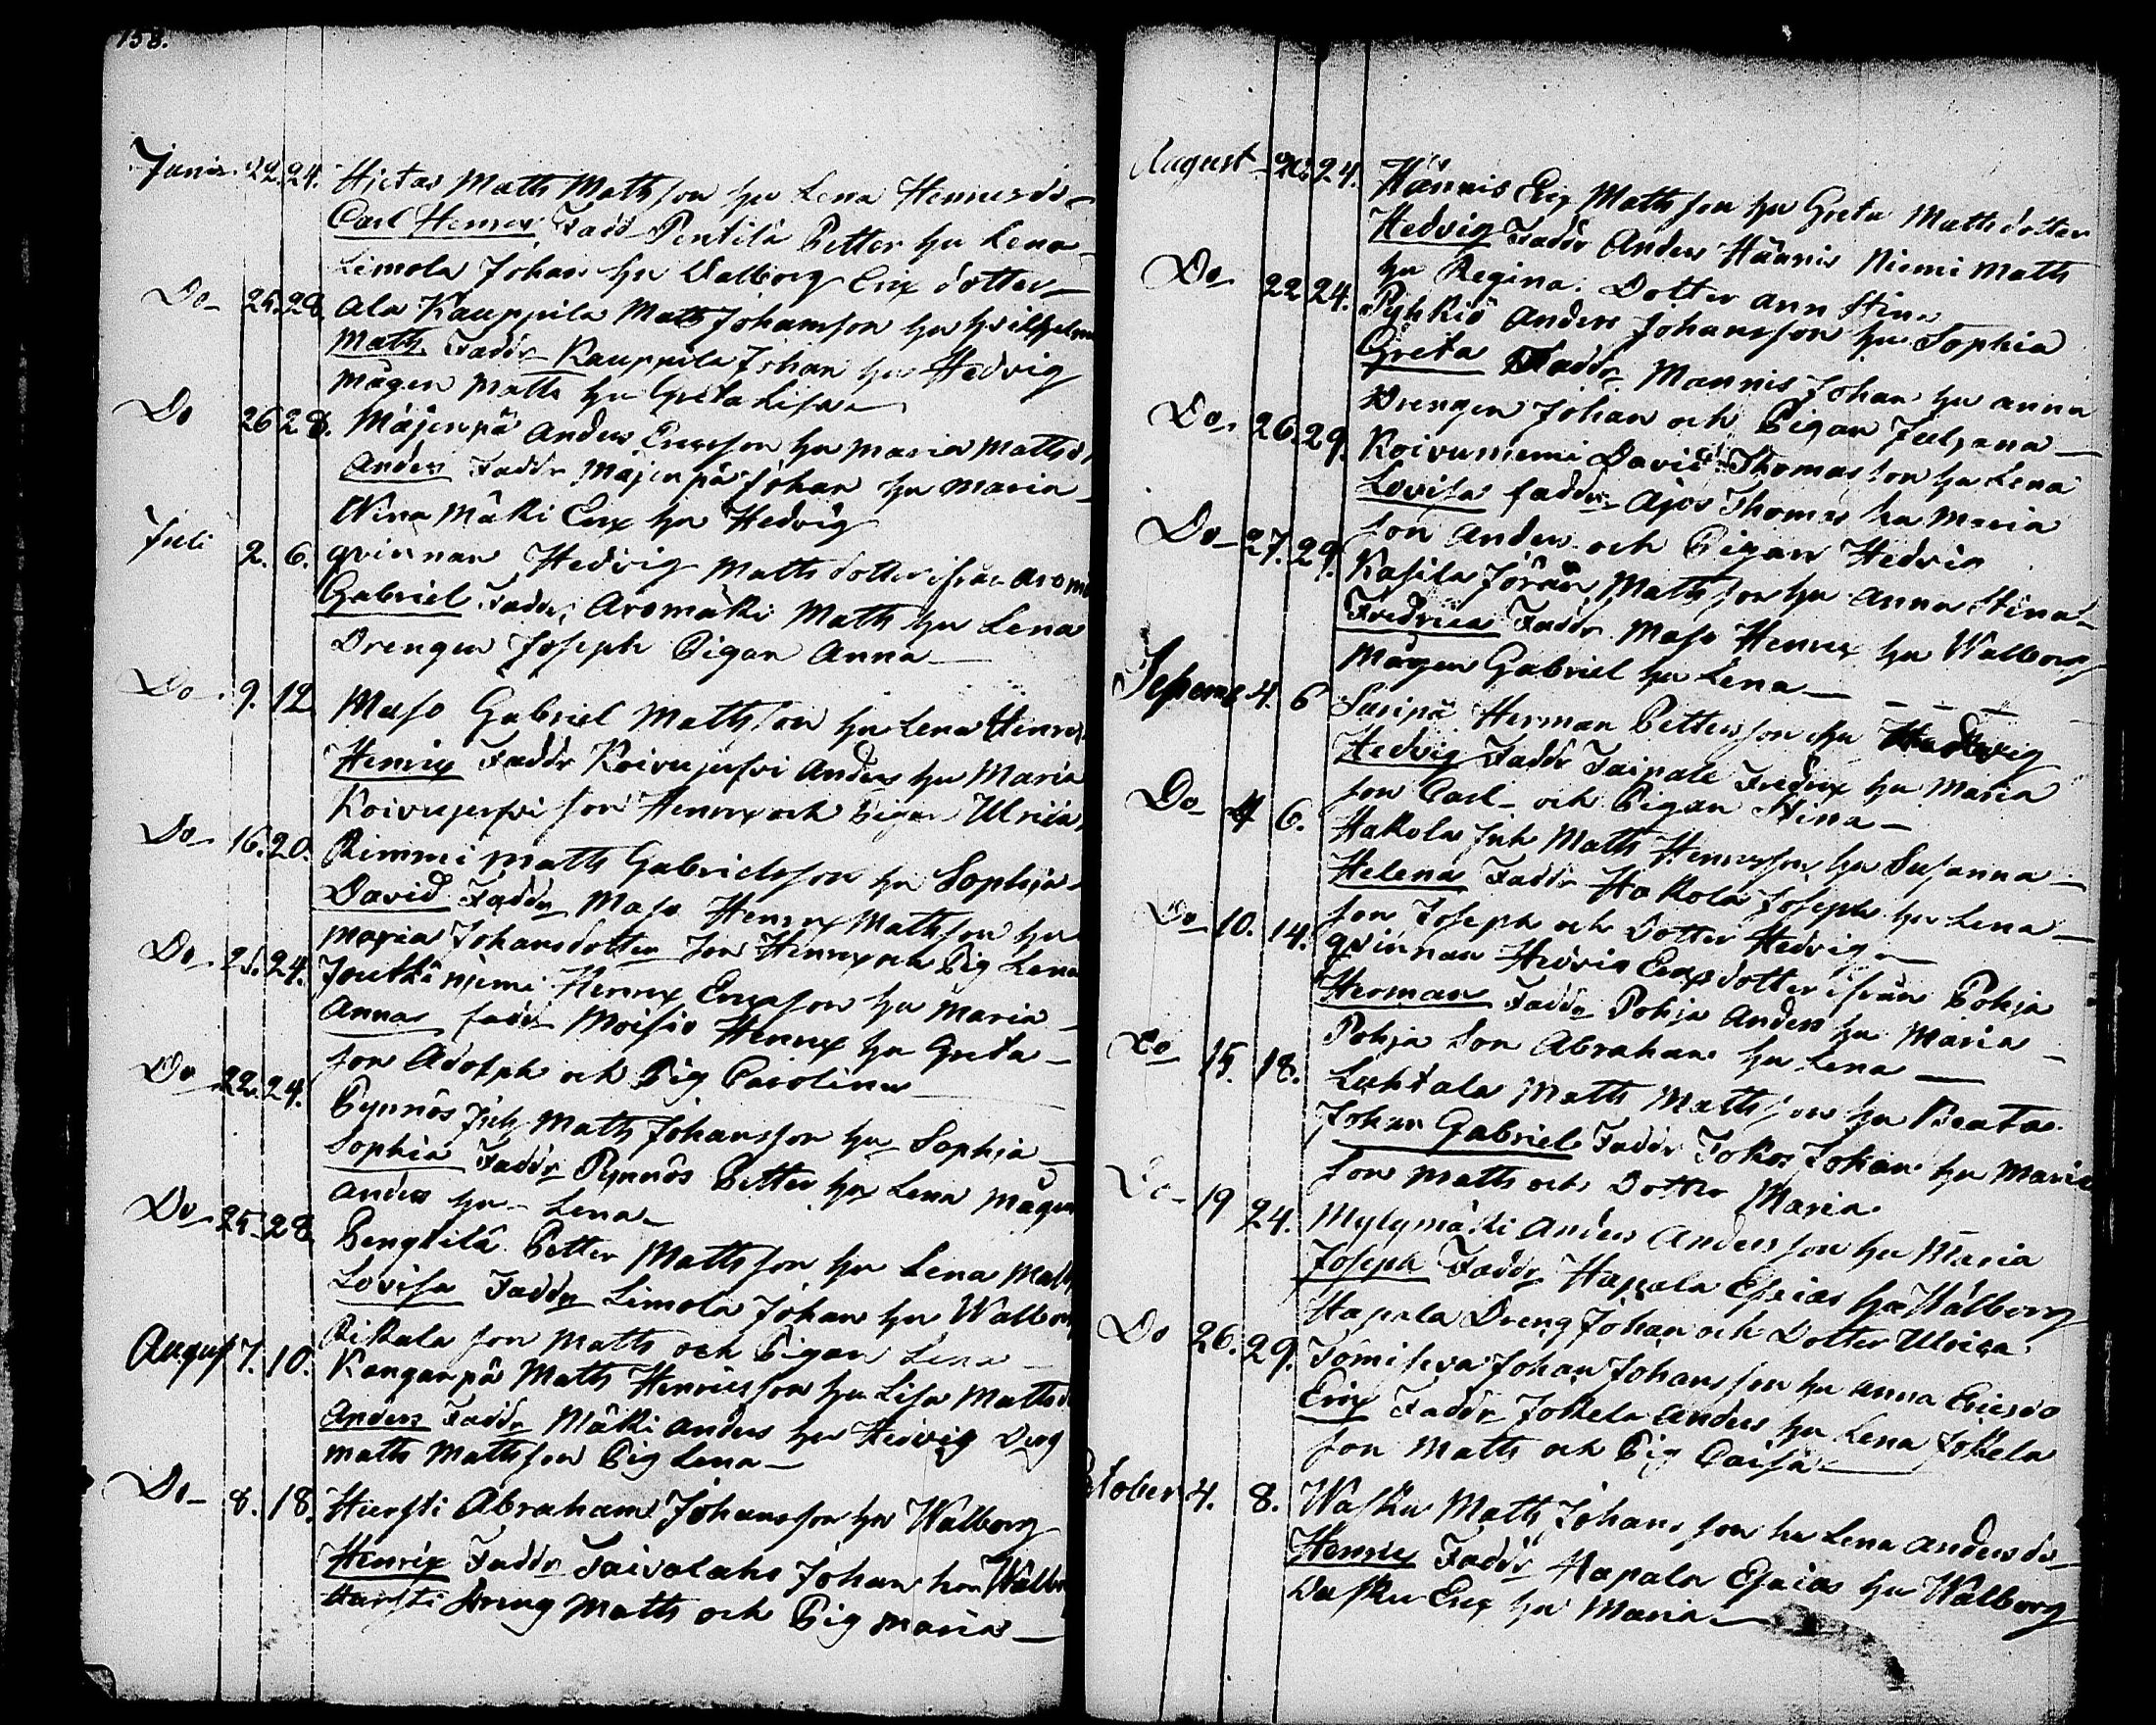 158.
Junii 22. 24. Hietas Matts Mattsson hu Lena Henricsdr
Carl Henrex Fadd Pentilä Petter hu Lena
Limola Johan hu Valborg Erix dotter
Do 25. 28. Ala Kauppila Matts Johansson hu Wilhelm
Matts Faddr Kauppila Johan hu Hedvig
mågen Matts hu Greta Lisa
Do 26 28. Mäjenpä Anders Ericsson hu Maria Mattsd
Anders Faddr Mäjenpä Johan hu Maria
Wina Mäki Erix hu Hedvig
Juli 2. 6. qvinnan Hedvig Matts dotter ifrån Arom
Gabriel Faddr, Aromäki Matts hu Lena
Drengen Joseph Pigan Anna
Do 9. 12. Maso Gabriel Mattsson hu Lena Henrex
Henrix Faddr Koivujerfvi Anders hu Maria
Koivujerfvi son Henrex och Pigan Ulrica
Do 16. 20. Rimmi Matts Gabrielsson hu Sophia
David Faddr Maso Henrex Mattsson hu
Maria Johansdotter son Henrex och Pig Lena
Do 21. 24. Joutkäniemi Henrex Ericsson hu Maria
Anna fadd Moisio Henrex hu Greta
son Adolph och Pig Carolina
Do 22. 24. Pynnös Inh Matts Johansson hu Sophia
Sophia Faddr Pynnös Petter hu Lena mågen
Anders hu Lena
Do 25. 28. Pengkilä Petter Mattsson hu Lena Matts
Lovisa Faddr Limola Johan hu Walborg
Rikala son Matts och Pigan Lena
August 7. 10. Kanganpä Matts Henricsson hu Lisa Mattsd
Anders Faddr Mäki Anders hu Hedvig Drg
Matts Mattsson Pig Lena
Do 8. 18. Hursti Abraham Johansson hu Walborg
Henrix Faddr Taivalaho Johan hu Walbor
Hursti Dreng Matts och Pig Maria
August 20. 24. Hännis Eriq Mattsson hu Greta Mattsdotter
Hedvig Faddr Anders Hännis Niemi Matts
hu Regina. Dotter Ann Stina
Do 22 24. Pyhkiö Anders Johansson hu Sophia
Greta Faddr Mannis Johan hu Anna
Drengen Johan och Pigan Juliana
Do 26. 29. Koivuniemi David Thomasson hu Lena
Lovisa faddr Ajos Thomas hu Maria
son Anders och Pigan Hedvig
Do 27. 29. Kasila Jöran Mattsson hu Anna Stina
Fredrica Faddr Maso Henrex hu Walborg
Mågen Gabriel hu Lena
4. 6 Saripä Herman Pettersson hu Hedvig
Hedvig Faddr Taipale Fredrex hu Maria
son Carl och Pigan Stina
Do 4 6. Hakola Inh Matts Henrexson hu Susanna
Helena Faddr Hakola Joseph hu Lena
son Joseph och Dotter Hedvig
Do 10. 14. qvinnan Hedvig Erixdotter ifrån Pohja
Herman Faddr Pohja Anders hu Maria
Pohja Son Abraham hu Lena
Do 15. 18. Luhtala Matts Mattsson hu Beata
Johan Gabriel Faddr Jokos Johan hu Maria
son Matts och Dotter Maria
Do 19 24. Myllymäki Anders Andersson hu Maria
Joseph Faddr Hapala Esaias hu Walborg
Hapala Dreng Johan och Dotter Ulrica
Do 26. 29. Tomiseva Johan Johansson hu Anna Ericsdo
Erix Faddr Jokela Anders hu Lena Jokela
son Matts och Pig Caisa
October 4. 8. Wasku Matts Johansson hu Lena Andersdr
Henrix Faddr Hapala Esaias hu Walborg
Wasku Erex hu Maria